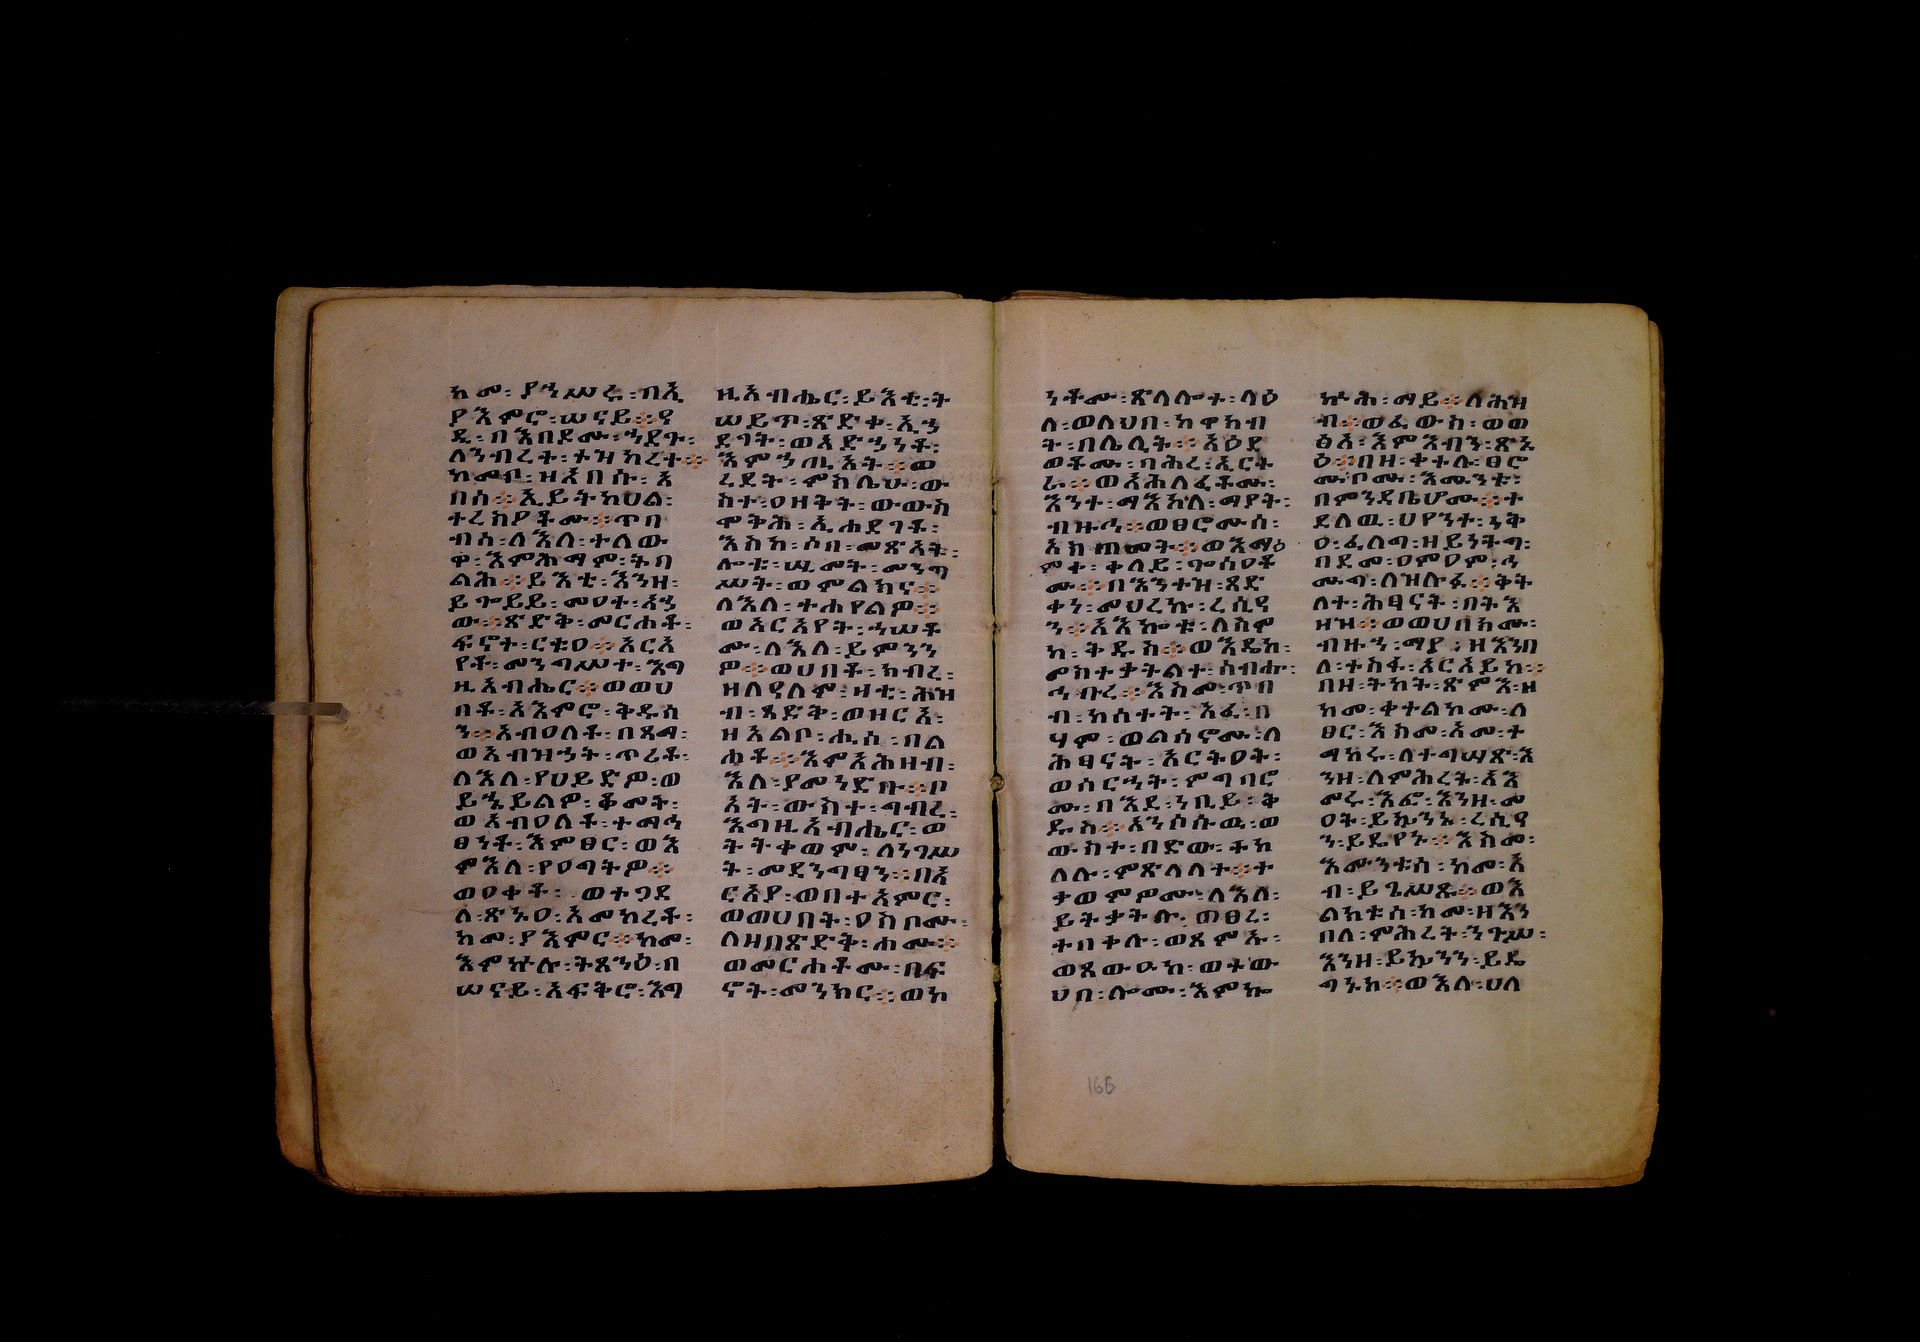 ከመ፡ ያኀሥሩ፡ በኢ
ያእምሮ፡ ሠናይ።
ለንብረት፡ ተዝከረት።
ተረክቦቶሙ። ጥበ
ብሰ፡ ለእለ፡ ተለው
ዋ፡ እምሕማም፡ ትባ
ልሕ። ይእቲ፡ እንዘ፡
ይጐይይ፡ መዐተ፡ እኁ
ው። ጽድቅ፡ መርሐቶ፡
ፍኖተ፡ ርቱዐ። አርአ
የቶ፡ መንግሥተ፡ እግ
ዚአብሔር። ወወሀ
በቶ፡ አእምሮ፡ ቅዱሰ
ን። አብዐለቶ፡ በጻማ፡
ወአብዝኃት፡ ጥሪቶ፡
ለእለ፡ የሀይድዎ፡ ወ
ይኄይልዎ፡ ቆመት፡
ወአብዐለቶ፡ ተማኅ
ፀነቶ፡ እምፀር፡ ወእ
ምእለ፡ የዐግትዎ።
ወዐቀቶ፡ ወተጋደ
ለ፡ ጽኑዐ፡ አመከረቶ፡
ከመ፡ ያእምር። ከመ፡
እምኵሉ፡ ትጸንዕ፡ በ
ሠናይ፡ አፍቅሮ፡ እግ
ዚአብሔር፡ ይእቲ፡ ት
ሠይጥ፡ ጻድቀ፡ ኢኀ
ደገት፡ ወአድኀነቶ፡
እምኃጢአት። ወ
ረደት፡ ምስሌሁ፡ ው
ስተ፡ ዐዘቅት፡ ወውስ
ተ፡ ሞቅሕ፡ ኢኀደገቶ፡
እስከ፡ ሶበ፡ መጽአት፡
ሎቱ፡ ሢመት፡ መንግ
ሥት፡ ወምልክና።
ለእለ፡ ተሐየልዎ።
ወአርአየት፡ ኀሠቶ
ሙ፡ ለእለ፡ ይምንን
ዎ። ወሀበቶ፡ ክብረ፡
ዘለዓለም፡ ዛቲ፡ ሕዝ
ብ፡ ጻድቅ፡ ወዘርእ፡
ዘአልቦ፡ ሒስ፡ በል
ሐቶ። እምአሕዛብ፡
እለ፡ ያመንድቡ። ቦ
አት፡ ውስተ፡ ገብረ፡
እግዚአብሔር፡ ወ
ትትቀወም፡ ለነገሥ
ት፡ መደንግፃን። በእ
ርእያ፡ ወበተአምር፡
ወወሀበት፡ ዐስቦሙ፡
ለዝበጽድቅ፡ ሐሙ።
ወመርሐቶሙ፡ በፍ
ኖት፡ መንክር። ወኮ
ነቶሙ፡ ጽላሎተ፡ ላዕ
ለ፡ ወለህበ፡ ከዋክብ
ት፡ በሌሊት። አዕደ
ወቶሙ፡ ባሕረ፡ ኤርት
ራ። ወአሕለፈቶሙ፡
እንተ፡ ማእከለ፡ ማያት፡
ብዙኅ። ወፀሮሙሰ፡
አስጠመት። ወእማዕ
ምቀ፡ ቀላይ፡ ጐሰዐቶ
ሙ። በእንተዝ፡ ጻድ
ቃን፡ መሀረኩ፡ ረሲዓ
ን። አእኰቱ፡ ለስም
ከ፡ ቅዱስ። ወእዴከ፡
መስተቃትልተ፡ ሰብሑ፡
ኅቡረ። እስመ፡ ጥበ
ብ፡ ከሠተት፡ አፈ፡ በ
ሃም፡ ወልሳኖሙ፡ ለ
ሕፃናት፡ አርትዐት፡
ወሰርሐት፡ ምግባሮ
ሙ፡ በእደ፡ ነቢይ፡ ቅ
ዱስ። አንሶሰዉ፡ ወ
ውስተ፡ በድው፡ ቶከ
ሉ፡ ምጽላላት። ተ
ቃወምዎሙ፡ ለእለ፡
ይትቃተሉ፡ ወፀረ፡
ተበቀሉ፡ ወጸምኡ፡
ወጸውዑከ፡ ወተው
ህበ፡ ሎሙ፡ እምኰ
ኵሕ፡ ማይ። ለሕዝ
ብ። ወፈውስ፡ ወወ
ፅአ፡ እምእብን፡ ጽኑ
ዕ። በዘ፡ ቀተሉ፡ ፀሮ
ሙ፡ ቦሙ፡ እሙንቱ፡
በምንዳቤሆሙ። ተ
ደለዉ፡ ህየንተ፡ ነቅ
ዐ፡ ፈለግ፡ ዘይነትግ፡
በደመ፡ ዐምዐም፡ ኀ
ሙግ፡ ለዝሉፈ። ቅት
ለተ፡ ሕፃናት፡ በትእ
ዛዝ። ወወሀበከሙ፡
ብዙኀ፡ ማያ፡ ዘእንበ
ለ፡ ተስፋ፡ አርአይከ።
በዘ፡ ትካት፡ ጽምእ፡ ዘ
ከመ፡ ቀተልከሙ፡ ለ
ፀር፡ እስመ፡ አመ፡ ተ
ማከሩ፡ ለተግሣጽ፡ እ
ንዘ፡ ለምሕረት፡ አእ
መሩ፡ እፎ፡ እንዘ፡ መ
ዐት፡ ይኴነኑ፡ ረሲዓ
ን፡ ይዴየኑ። እስመ፡
እሙንቱሰ፡ ከመ፡ አ
ብ፡ ይጌሥጹ። ወእ
ልክቱሰ፡ ከመ፡ ዘእን
በለ፡ ምሕረት፡ ንጉሥ፡
እንዘ፡ ይኴንን፡ ይዴ
ግኑከ። ወእለ፡ ሀለ
165